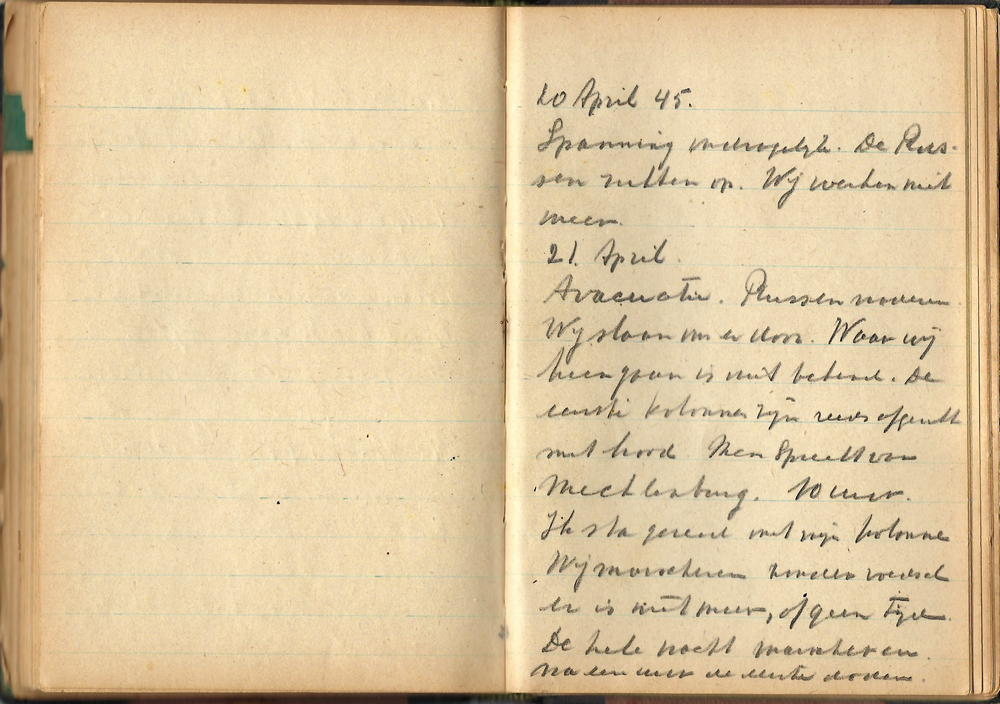 20 April 45.
Spanning ondragelijk. De Rus-
sen rukken op. Wij werken niet
meer.
21. April.
Avacuatie. Russen naderen.
Wij slaan om er door. Waar wij
heen gaan is niet bekend. De
eerste kolonnes zijn reeds afgerukt
met brood. Men spreekt van
Mechlenburg. 10 uur.
Ik sta gereed met mijn kolonne
Wij marscheren zonder voedsel
er is niet meer, of geen tijd.
De hele nacht marscheren.
na een uur de eerste doden.